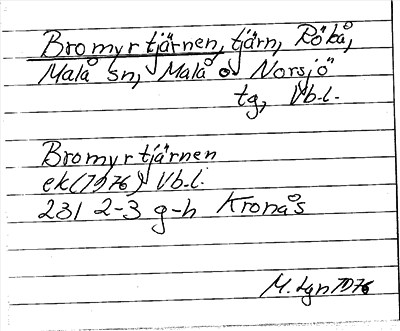 Bromyrtjärnen, tjärn, Rökå,
Malå sn, Malå o Norsjö
tg, Vb.l.
Bromyrtjärnen
ek (1976) Vb.l.
231 2-3 g-h Kronås
M. Lgn 1976